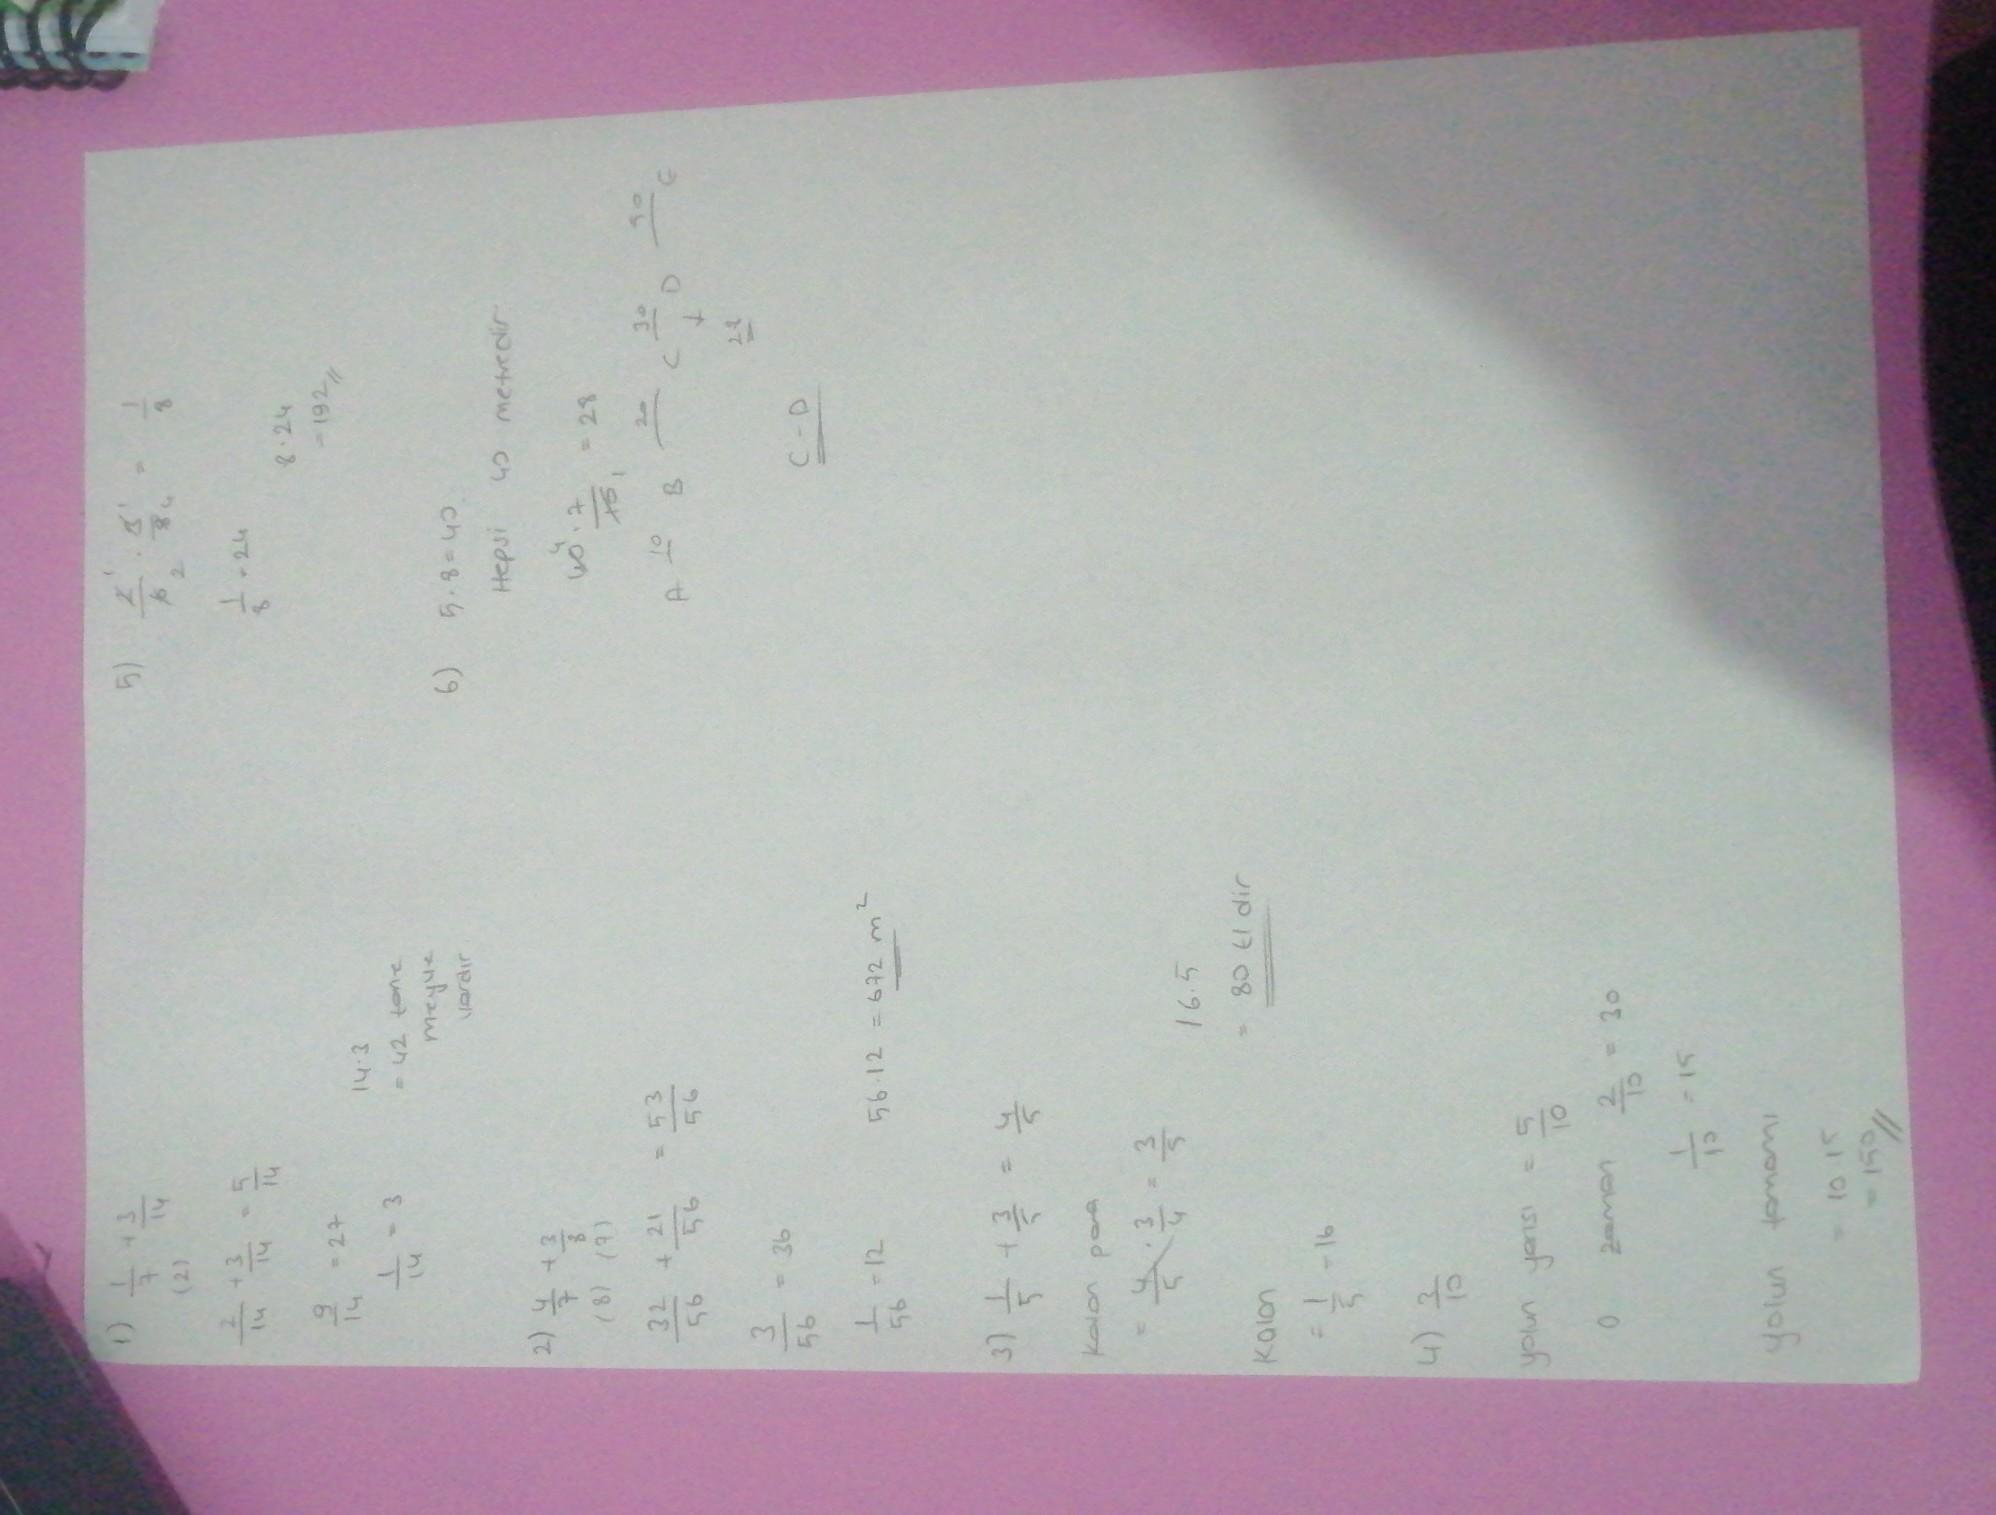 1) 1/7 + 3/14
(2)
2/14 + 3/14 = 5/14
9/14 = 27
1/14 = 3
14.3
= 42 tane
meyve
vardır
2) 4/7 + 3/8
(8) (7)
32/56 + 21/56 = 53/56
3/56 = 36
1/56 = 12
56.12 = 672 m²
3) 1/5 + 3/5 = 4/5
Kalan para
= 4/5 . 3/4 = 3/5
Kalan
= 1/5 = 16
16.5
= 80 tl dir
4) 3/10
yolun yarısı = 5/10
O zaman 2/10 = 30
1/10 = 15
yolun tamamı
= 10.15
= 150//
5) 2/6 . 3/8 = 1/8
1 1
2 4
1/8 = 24
8.24
= 192//
6) 5.8 = 40
Hepsi 40 metredir
40 . 7/10 = 28
4 1
A 10 B 20 C 30 D E
28
C - D